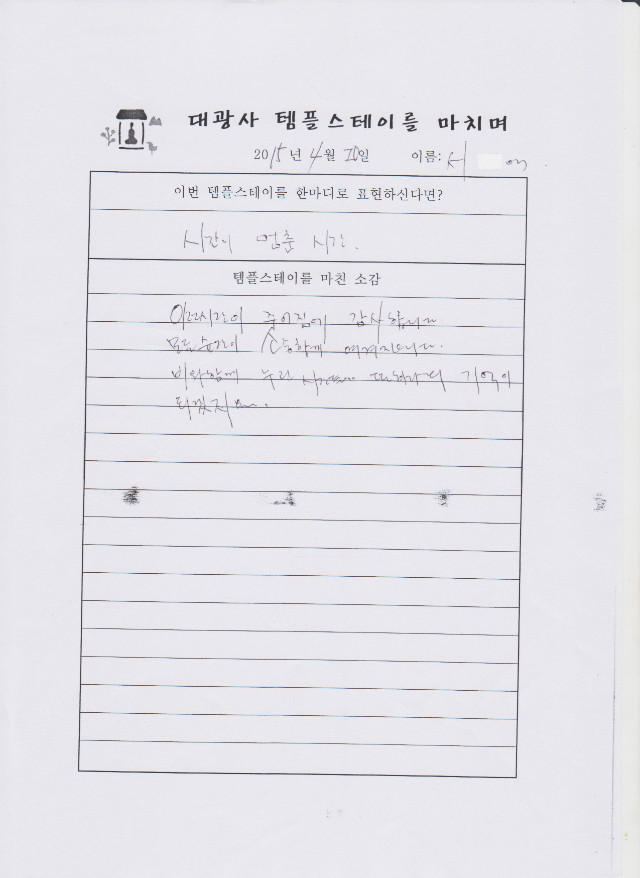 대광사 템플스테이를 마치며
2015년 4월 20일 이름: 서
이번 템플스테이를 한마디로 표현하신다면?
시간이 멈춘 시간.
템플스테이를 마친 소감
이런시간이 주어짐에 감사합니다
모든 순간이 소중하게 여겨지옵니다.
비와함께 누린 시간 또하나의 기억이
되겠지요.